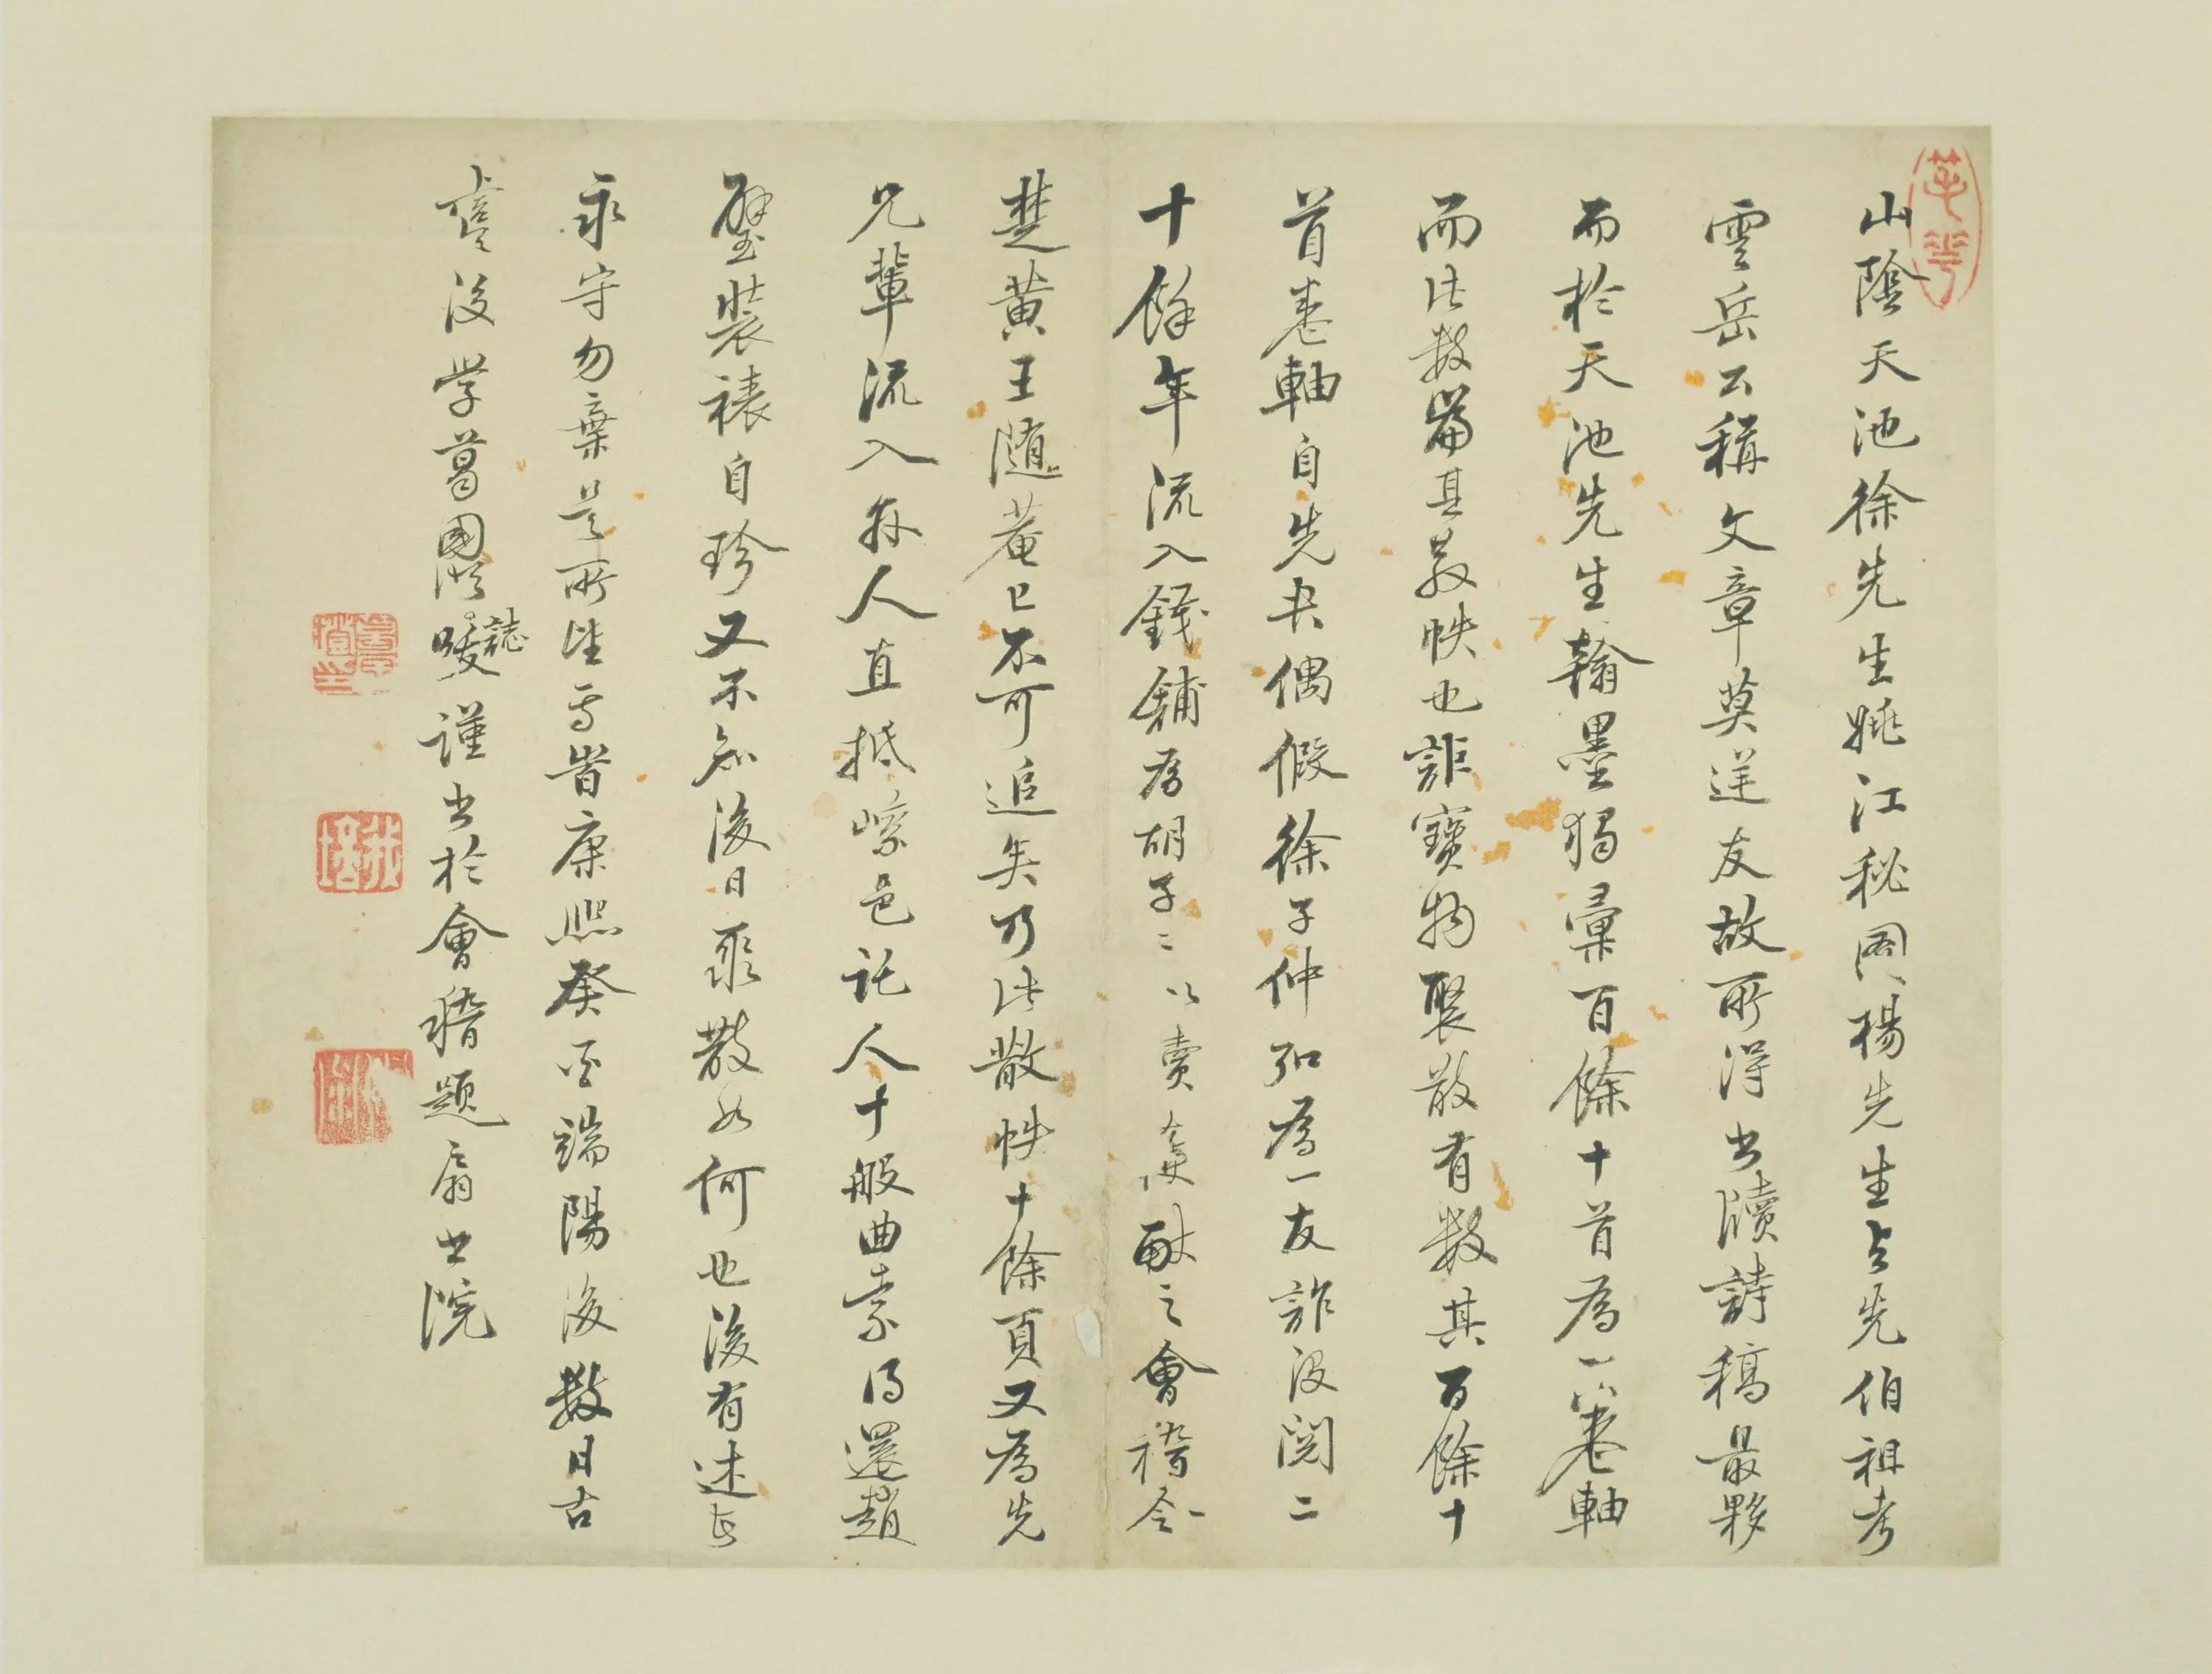 山陰天池徐先生姚江秘圖楊先生與先伯祖考
雲岳公稱文章莫逆友故所得書牘詩稿最夥
而於天池先生翰墨獨彙百餘十首為一卷軸
而此數篇其散帙也詎寶物聚散有數其百餘十
首卷軸自先夫偶假徐子仲弘為一友詐沒閱二
十餘年流入錢鋪為胡子二以賣獻之會稽令
楚黃王隨菴已不可追矣乃此散帙十餘頁又為先
兄輩流入外人直抵嵊邑託人十般曲索得還趙
璧裝裱自珍又不知後日聚散如何也後有述者
永守勿棄是所望焉昔康熙癸酉端陽後數日古
虞後學葛國誌謹書於會稽題扇書院